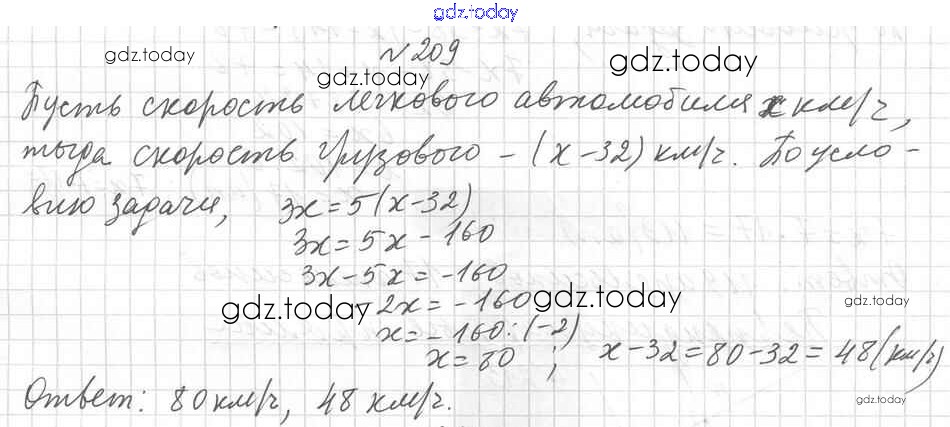 gdz.today
№209
gdz.today
gdz.today
gdz.today
Пусть скорость легкового автомобиля x км/ч,
тогда скорость грузового – (x-32) км/ч. По усло-
gdz.today
вию задачи, 3x=5(x-32)
3x=5x-160
3x-5x=-160
-2x=-160
gdz.today
gdz.today
gdz.today
x=-160:(-2)
x=80 ; x-32=80-32=48(км/ч)
Ответ: 80 км/ч, 48 км/ч.
gdz.today